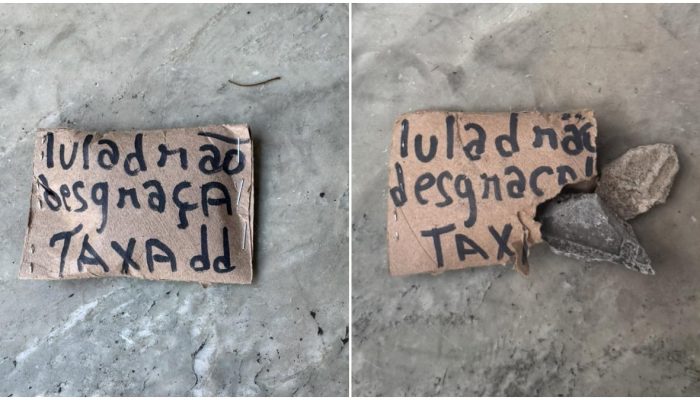 luladrão
desgraçA
TAXAdd
luladrão
desgraça
TAX